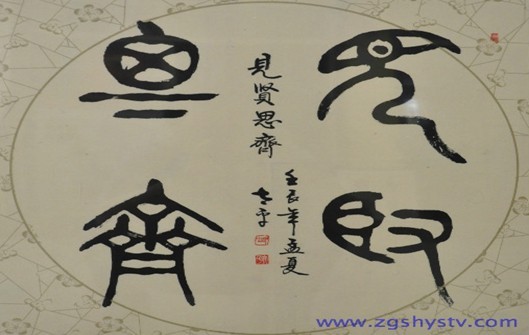 見臤
思齊
見賢思齊
壬辰年孟夏
www.zgshystv.com